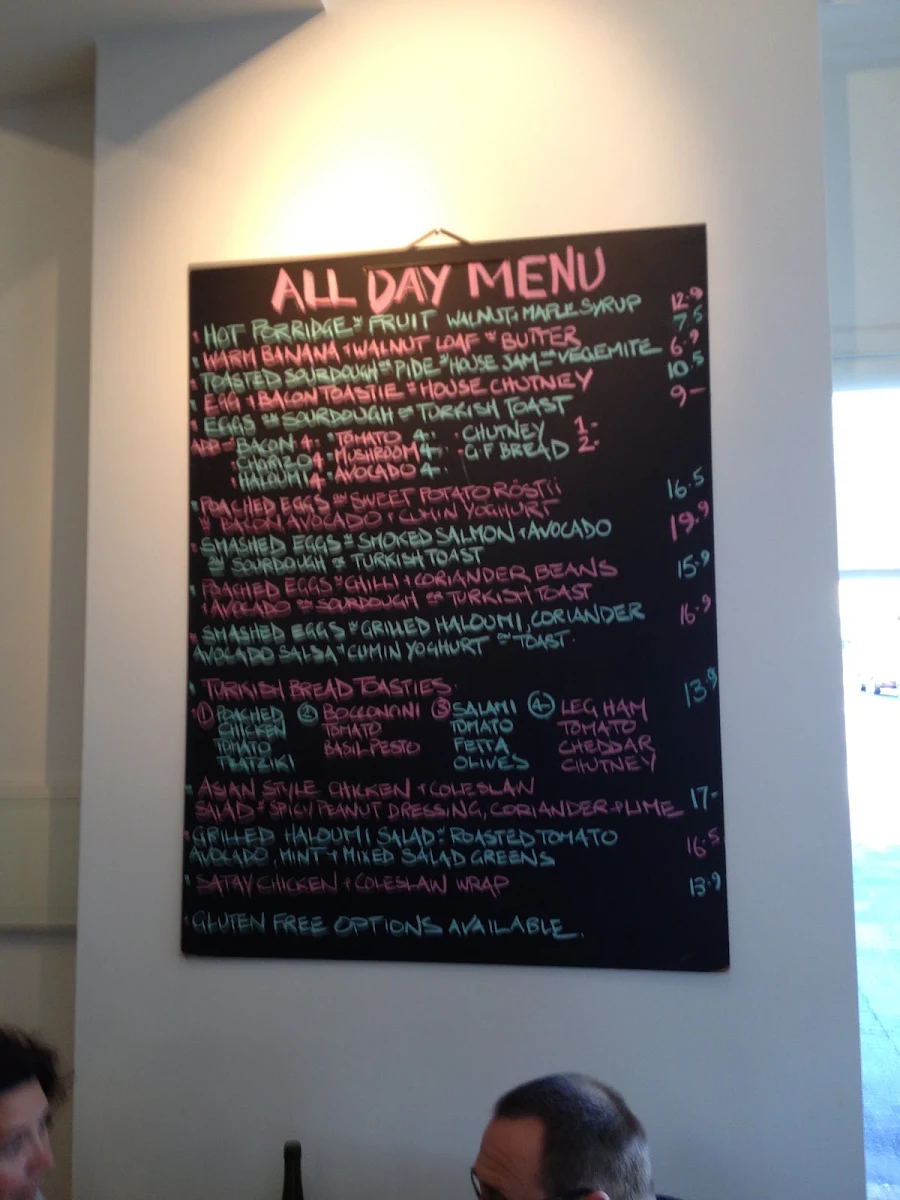 ALL DAY MENU
HOT PORRIDGE W FRUIT WALNUT & MAPLE SYRUP 12.9
WARM BANANA + WALNUT LOAF W BUTTER 7.5
TOASTED SOURDOUGH OR PIDE W HOUSE JAM OR VEGEMITE 6.9
EGG + BACON TOASTIE W HOUSE CHUTNEY 10.5
EGGS ON SOURDOUGH OR TURKISH TOAST 9-
ADD - BACON 4- TOMATO 4- CHUTNEY 1-
CHORIZO 4 MUSHROOM 4- G.F BREAD 2-
HALOUMI 4 AVOCADO 4-
POACHED EGGS ON SWEET POTATO RÖSTII 16.5
W BACON AVOCADO + CUMIN YOGHURT
SMASHED EGGS W SMOKED SALMON + AVOCADO 19.9
ON SOURDOUGH OR TURKISH TOAST
POACHED EGGS W CHILLI + CORIANDER BEANS 15.9
+ AVOCADO ON SOURDOUGH OR TURKISH TOAST
SMASHED EGGS W GRILLED HALOUMI, CORIANDER 16.9
AVOCADO SALSA + CUMIN YOGHURT ON TOAST.
TURKISH BREAD TOASTIES. 13.9
1 POACHED 2 BOCCONCINI 3 SALAMI 4 LEG HAM
CHICKEN TOMATO TOMATO TOMATO
TOMATO BASIL PESTO FETTA CHEDDAR
TZATZIKI OLIVES CHUTNEY
ASIAN STYLE CHICKEN + COLESLAW
SALAD W SPICY PEANUT DRESSING, CORIANDER + LIME 17-
GRILLED HALOUMI SALAD W ROASTED TOMATO 16.5
AVOCADO, MINT + MIXED SALAD GREENS
SATAY CHICKEN + COLESLAW WRAP 13.9
GLUTEN FREE OPTIONS AVAILABLE.